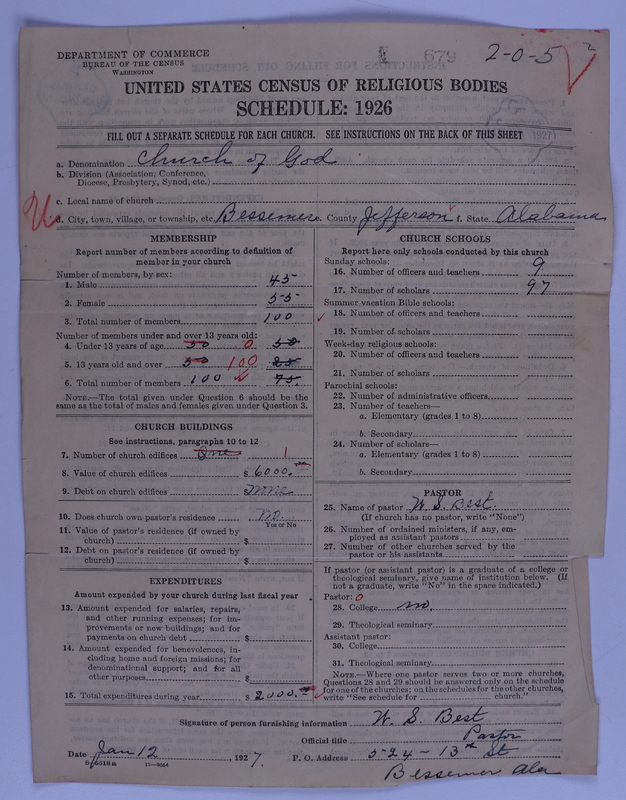 DEPARTMENT OF COMMERCE
BUREAU OF THE CENSUS
WASHINGTON
679
2-0-5
UNITED STATES CENSUS OF RELIGIOUS BODIES
SCHEDULE: 1926
FILL OUT A SEPARATE SCHEDULE FOR EACH CHURCH. SEE INSTRUCTIONS ON THE BACK OF THIS SHEET
a. Denomination Church of God
b. Division (Association, Conference,
Diocese, Presbytery, Synod, etc.)
c. Local name of church
d. City, town, village, or township, etc. Bessemer e. County Jefferson f. State Alabama
MEMBERSHIP
Report number of members according to definition of
member in your church
Number of members, by sex:
1. Male 45
2. Female 55
3. Total number of members 100
Number of members under and over 13 years old:
4. Under 13 years of age 50 0 50
5. 13 years old and over 50 100 25
6. Total number of members 100 75.
NOTE.—The total given under Question 6 should be the
same as the total of males and females given under Question 3.
CHURCH BUILDINGS
See instructions, paragraphs 10 to 12
7. Number of church edifices One 1
8. Value of church edifices $ 6000.
9. Debt on church edifices $ None
10. Does church own pastor's residence no.
Yes or No
11. Value of pastor's residence (if owned by
church) $
12. Debt on pastor's residence (if owned by
church) $
EXPENDITURES
Amount expended by your church during last fiscal year
13. Amount expended for salaries, repairs,
and other running expenses; for im-
provements or new buildings; and for
payments on church debt $
14. Amount expended for benevolences, in-
cluding home and foreign missions; for
denominational support; and for all
other purposes $
15. Total expenditures during year $ 2000.
CHURCH SCHOOLS
Report here only schools conducted by this church
Sunday schools:
16. Number of officers and teachers 9
17. Number of scholars 97
Summer vacation Bible schools:
18. Number of officers and teachers
19. Number of scholars
Week-day religious schools:
20. Number of officers and teachers
21. Number of scholars
Parochial schools:
22. Number of administrative officers
23. Number of teachers—
a. Elementary (grades 1 to 8)
b. Secondary
24. Number of scholars—
a. Elementary (grades 1 to 8)
b. Secondary
PASTOR
25. Name of pastor W. S. Best.
(If church has no pastor, write "None")
26. Number of ordained ministers, if any, em-
ployed as assistant pastors
27. Number of other churches served by the
pastor or his assistants
If pastor (or assistant pastor) is a graduate of a college or
theological seminary, give name of institution below. (If
not a graduate, write "No" in the space indicated.)
Pastor: 0
28. College no.
29. Theological seminary
Assistant pastor:
30. College
31. Theological seminary
NOTE.—Where one pastor serves two or more churches,
Questions 28 and 29 should be answered only on the schedule
for one of the churches; on the schedules for the other churches,
write "See schedule for church."
Signature of person furnishing information W. S. Best
Official title Pastor
Date Jan 12, 1927. P. O. Address 524-13th St
11-9664
Bessemer Ala